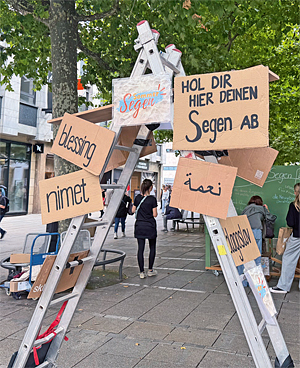 Segen
HOL DIR
HIER DEINEN
Segen AB
blessing
nimet
نعمة
blagoslov